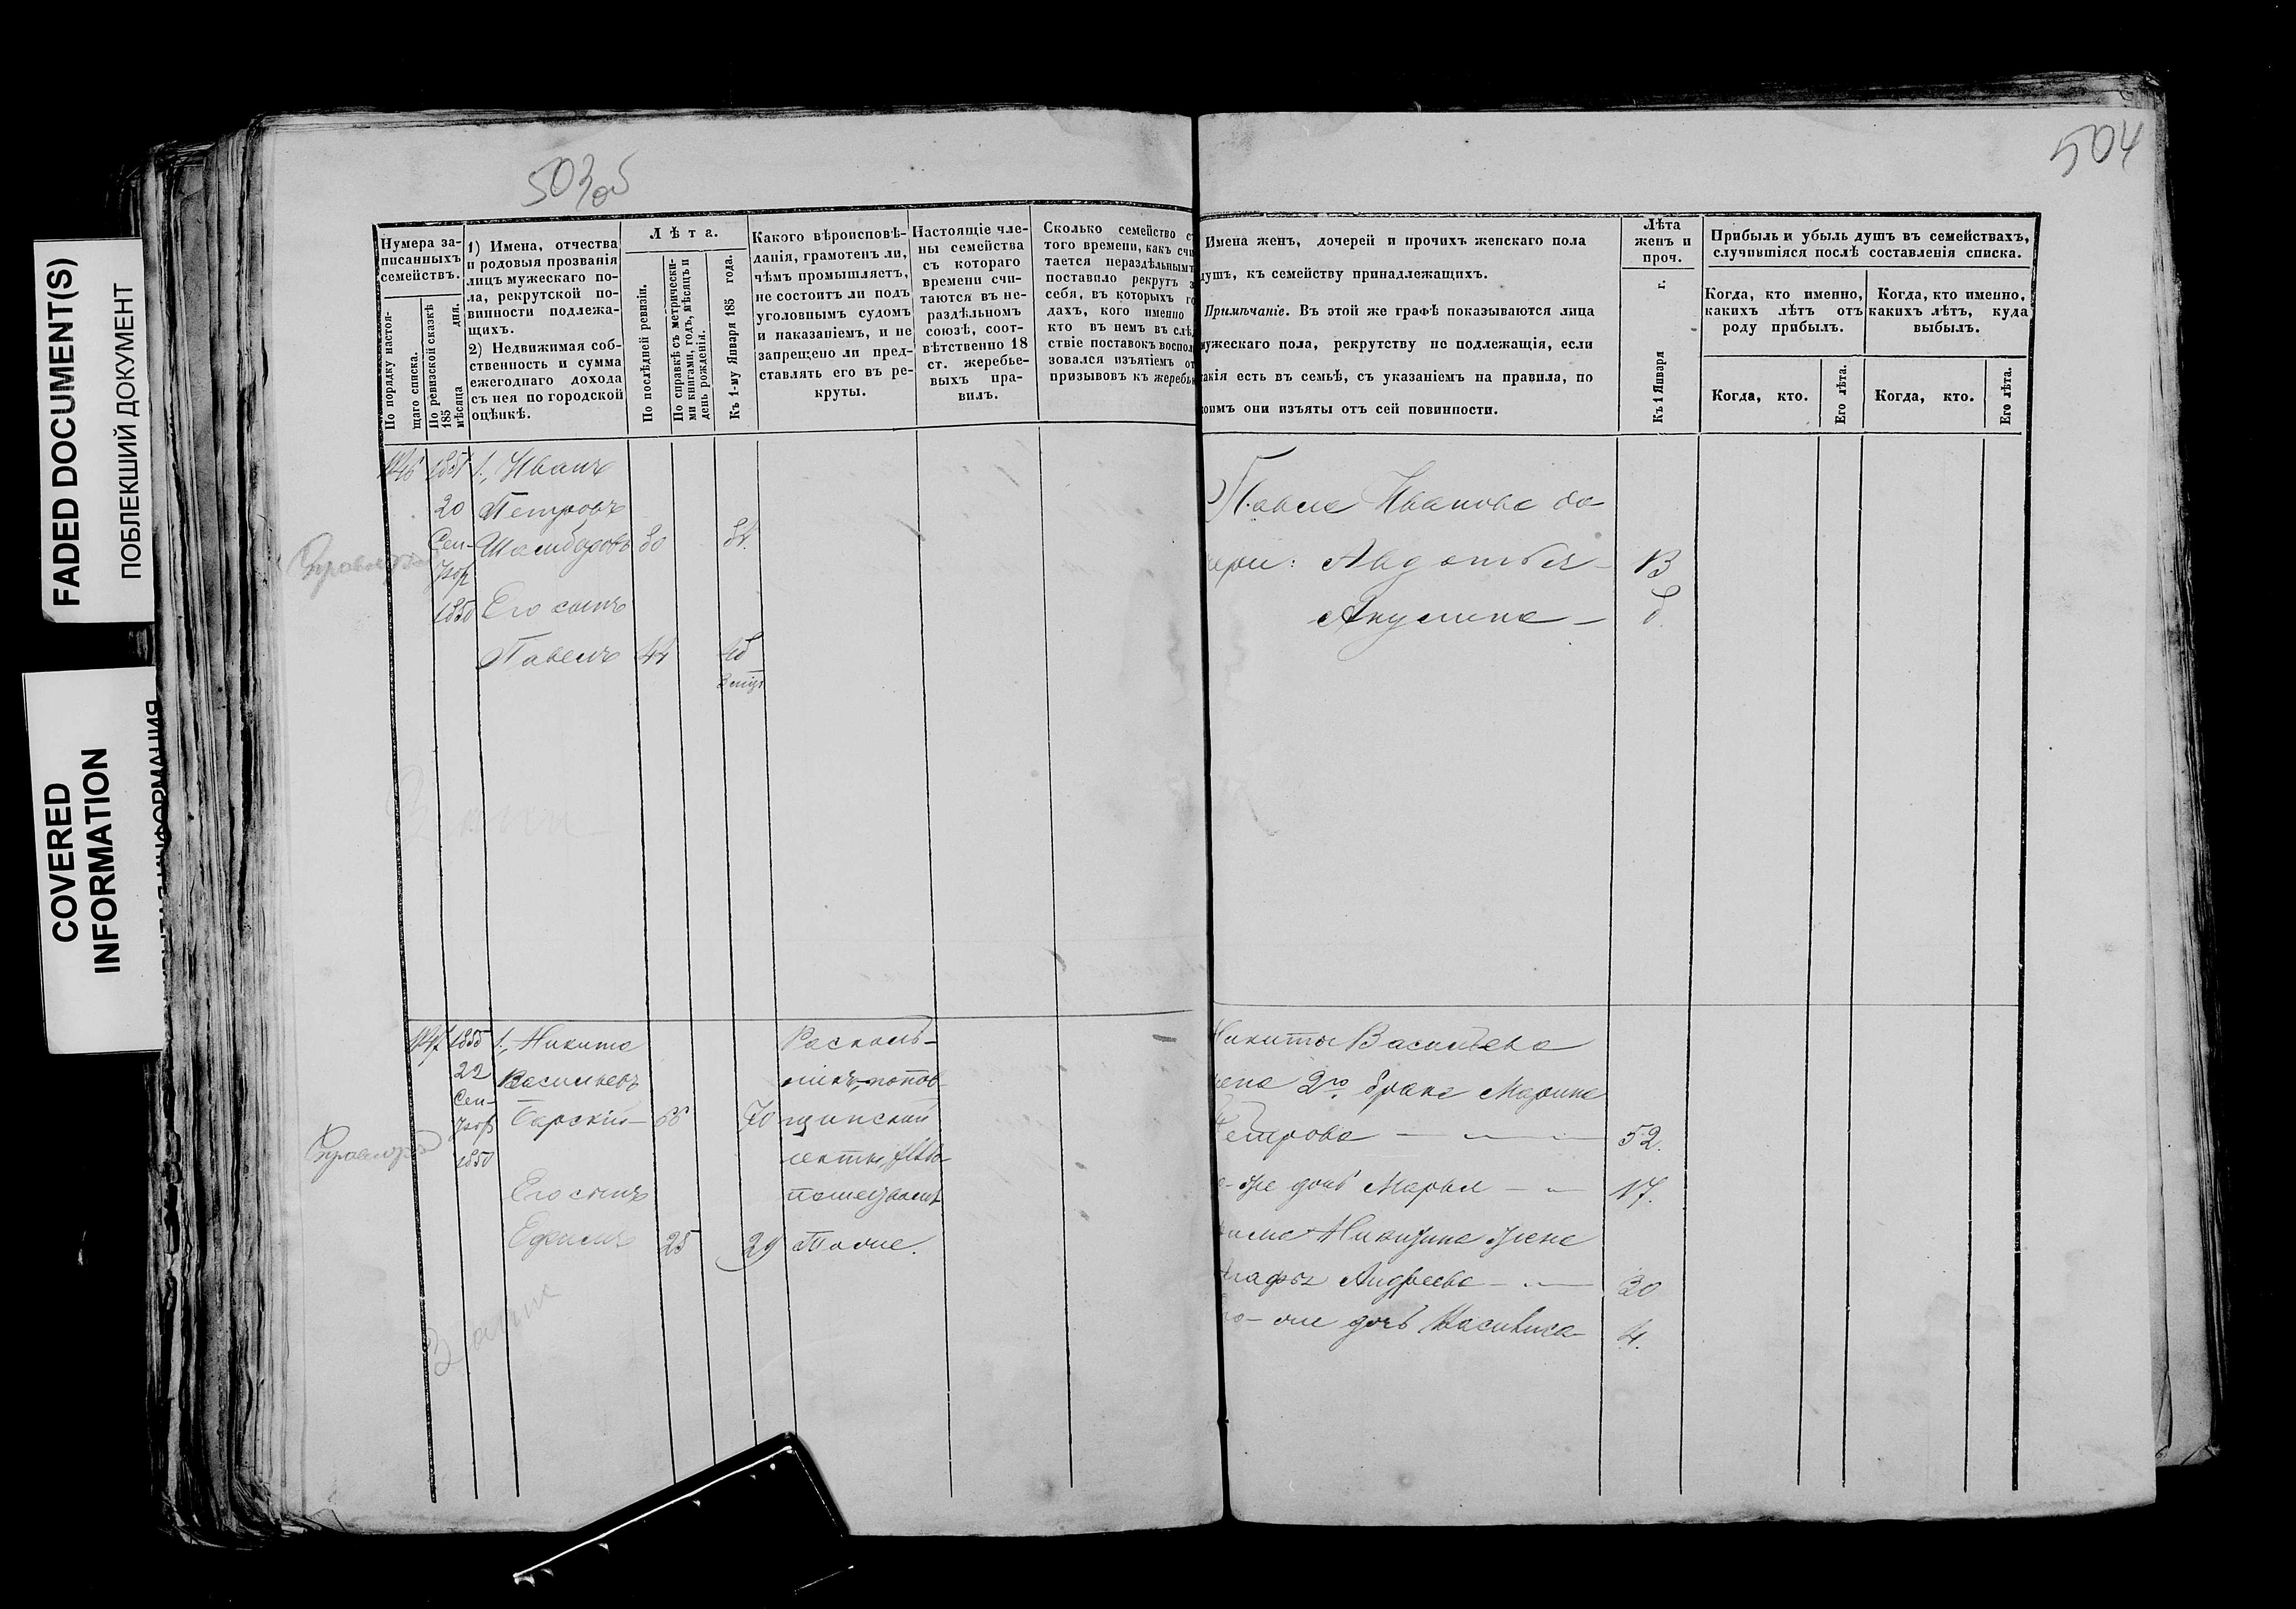 FADED DOCUMENT(S)
ПОБЛЕКШИЙ ДОКУМЕНТ
COVERED
INFORMATION
503 об
504
Нумера за-
писанныхъ
семействъ.
По порядку настоя-
щаго списка.
По ревизской сказкѣ
185 дня.
мѣсяца
1) Имена, отчества
и родовыя прозванія
лицъ мужескаго по-
ла, рекрутской по-
винности подлежа-
щихъ.
2) Недвижимая соб-
ственность и сумма
ежегоднаго дохода
съ нея по городской
оцѣнкѣ.
Лѣта.
По послѣдней ревизіи.
По справкѣ съ метрически-
ми книгами, годъ, мѣсяцъ и
день рожденія.
Къ 1-му Января 185 года.
Какого вѣроисповѣ-
данія, грамотенъ ли,
чѣмъ промышляетъ,
не состоитъ ли подъ
уголовнымъ судомъ
и наказаніемъ, и не
запрещено ли пред-
ставлять его въ ре-
круты.
Настоящіе чле-
ны семейства
съ котораго
времени счи-
таются въ не-
раздѣльномъ
союзѣ, соот-
вѣтственно 18
ст. жеребье-
выхъ пра-
вилъ.
Сколько семейство с
того времени, какъ счи
тается нераздѣльнымъ
поставило рекрутъ з
себя, въ которыхъ го
дахъ, кого именно
кто въ немъ въ слѣ
ствіе поставокъ воспол
зовался изъятіемъ от
призывовъ къ жеребь
Имена женъ, дочерей и прочихъ женскаго пола
душъ, къ семейству принадлежащихъ.
Примѣчаніе. Въ этой же графѣ показываются лица
мужескаго пола, рекрутству не подлежащія, если
такія есть въ семьѣ, съ указаніемъ на правила, по
коимъ они изъяты отъ сей повинности.
Лѣта
женъ и
проч.
Къ 1 Января г.
Прибыль и убыль душъ въ семействахъ,
случившіяся послѣ составленія списка.
Когда, кто именно,
какихъ лѣтъ отъ
роду прибылъ.
Когда, кто именно,
какихъ лѣтъ, куда
выбылъ.
Когда, кто.
Его лѣта.
Когда, кто.
Его лѣта.
1. Иванъ
20 Петровъ
Сен- 80 84.
1850 Его сынъ
Павелъ 44 48
Павла Иванова до
чери: Авдотья 13
Акулина 8.
1. Никита
22 Васильевъ
Сен- Барскій 66 70
1850
Его сынъ
Ефимъ 25 29
Расколь-
никъ попов-
щинской
секты,
Тоже.
Никиты Васильева
жена 2го брака Марина
Петрова 52.
дочь Марья 17.
Никитина жена
Андреева 30
дочь Василиса 4.